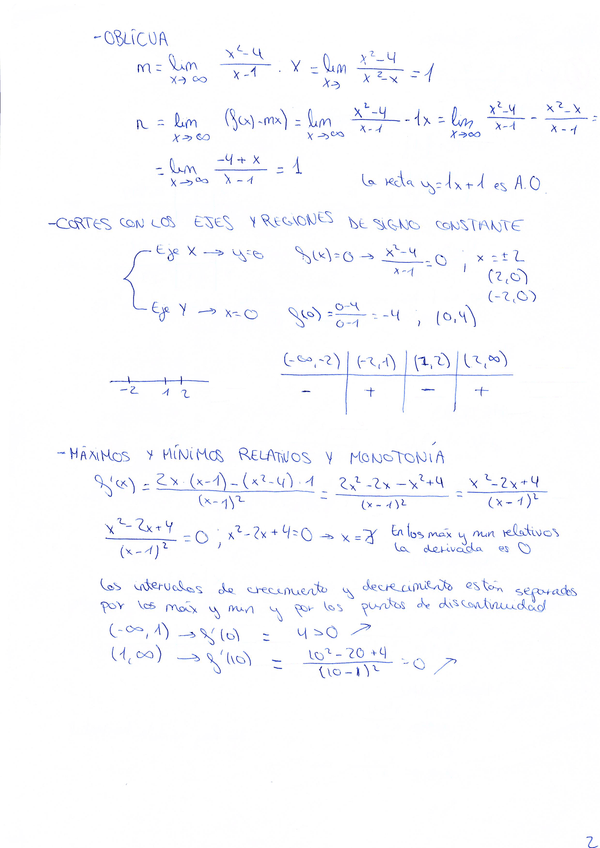 -OBLÍCUA
m = lim x→∞ x²-4 / x-1 · x = lim x→ x²-4 / x²-x = 1
n = lim x→∞ (f(x)-mx) = lim x→∞ x²-4 / x-1 - 1x = lim x→∞ x²-4 / x-1 - x²-x / x-1 =
= lim x→∞ -4+x / x-1 = 1 La recta y=1x+1 es A.O.
-CORTES CON LOS EJES Y REGIONES DE SIGNO CONSTANTE
Eje X → y=0 f(x)=0 → x²-4 / x-1 = 0 ; x = ±2
(2,0)
(-2,0)
Eje Y → x=0 f(0) = 0-4 / 0-1 = -4 ; (0,4)
(-∞,-2) | (-2,1) | (1,2) | (2,∞)
-2 1 2
- | + | - | +
-MÁXIMOS Y MÍNIMOS RELATIVOS Y MONOTONÍA
f'(x) = 2x·(x-1)-(x²-4)·1 / (x-1)² = 2x²-2x-x²+4 / (x-1)² = x²-2x+4 / (x-1)²
x²-2x+4 / (x-1)² = 0 ; x²-2x+4=0 → x=∄ En los máx y mín relativos
la derivada es 0
Los intervalos de crecimiento y decrecimiento están separados
por los máx y mín y por los puntos de discontinuidad
(-∞,1) → f'(0) = 4>0 ↗
(1,∞) → f'(10) = 10²-20+4 / (10-1)² = 0 ↗
2